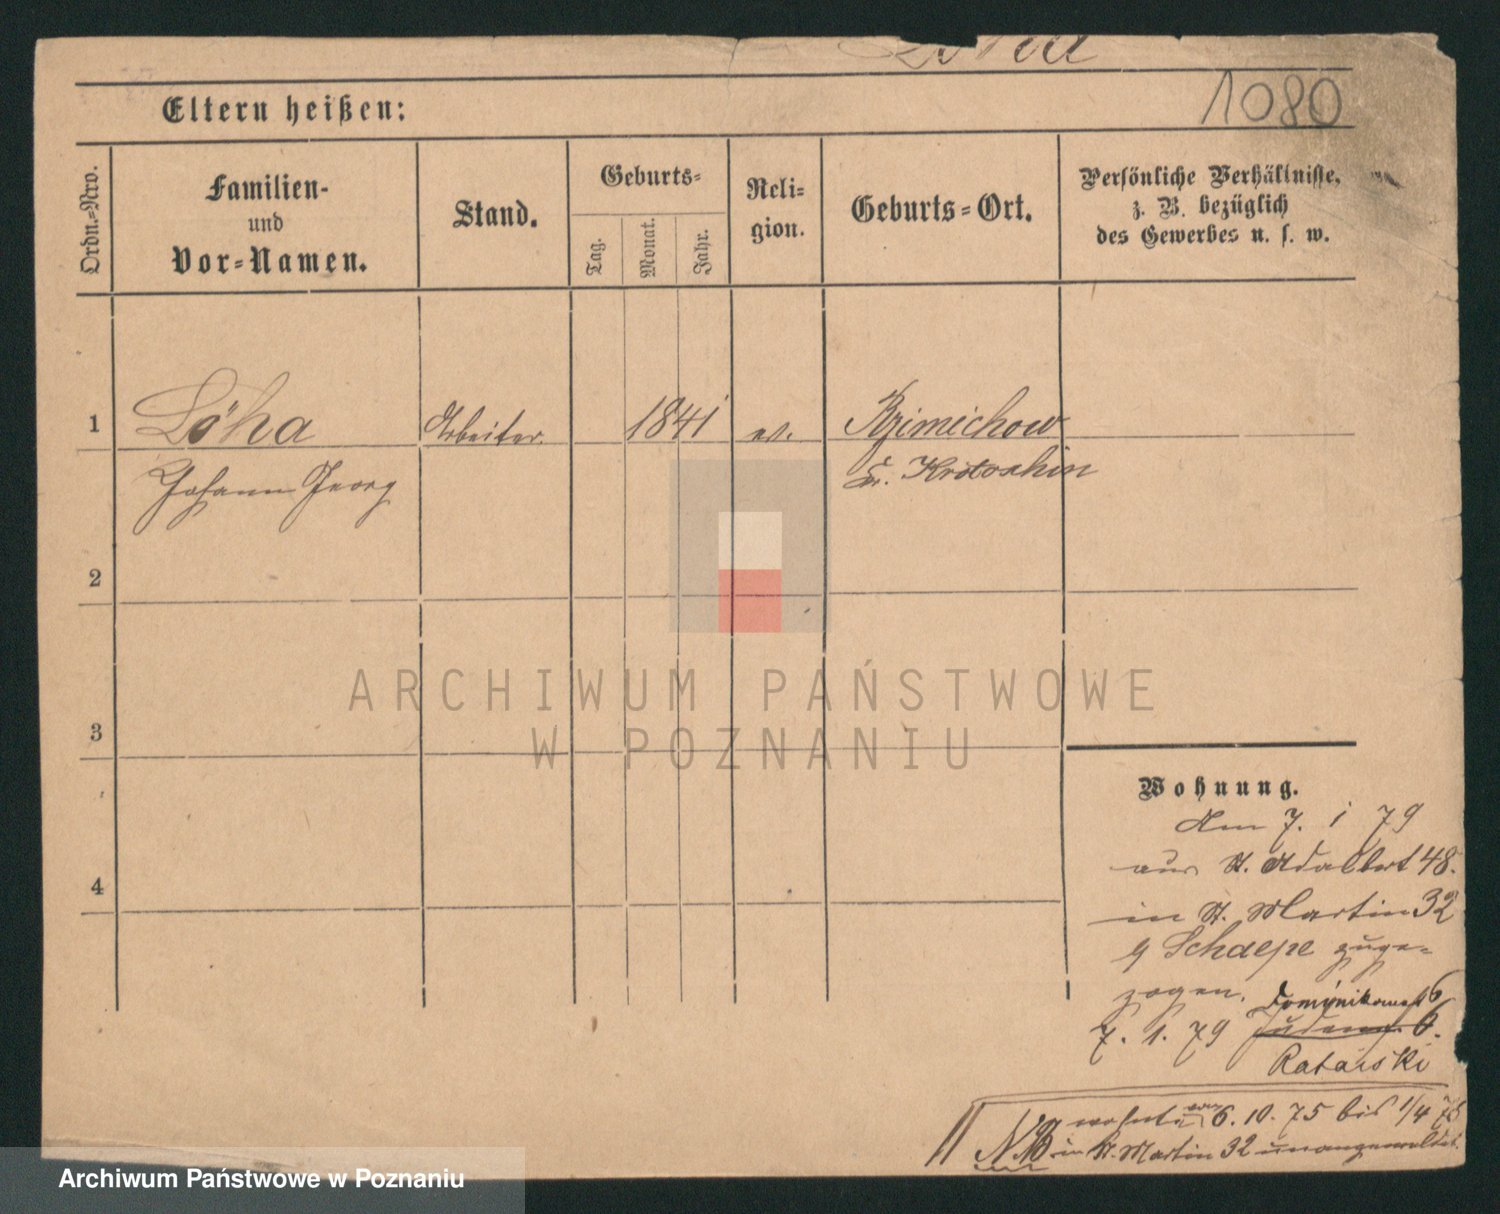 1080
Eltern heißen:
Ordn.-Nro.
Familien-
und
Vor-Namen.
Stand.
Geburts-
Tag.
Monat.
Jahr.
Reli-
gion.
Geburts-Ort.
Persönliche Verhältnisse,
z. B. bezüglich
des Gewerbes u. s. w.
1
Löha
Arbeiter.
1841
ev.
Kr. Krotoschin
Johann Georg
2
3
4
ARCHIWUM PAŃSTWOWE
W POZNANIU
Wohnung.
Am 7. 1 79
aus St. Adalbert 48.
in St. Martin 32
Schaepe zuge-
zogen. Dominikanerst 6
7. 1. 79 Judenst. 6.
Ratajski
NB wohnte vom 6. 10. 75 bis 1/4
in St. Martin 32 unangemeldet.
Archiwum Państwowe w Poznaniu